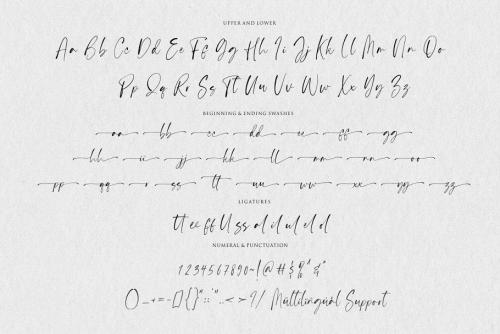 UPPER AND LOWER
Aa Bb Cc Dd Ee Ff Gg Hh Ii Jj Kk Ll Mm Nn Oo
Pp Qq Rr Ss Tt Uu Vv Ww Xx Yy Zz
BEGINNING & ENDING SWASHES
aa bb cc dd ee ff gg
hh ii jj kk ll mm nn oo
pp qq rr ss tt uu vv ww xx yy zz
LIGATURES
tt ee ff ll ss al il ul el d
NUMERAL & PUNCTUATION
1234567890~!@#$
()_+=-[]{}"::'..<>?/ Multilingual Support